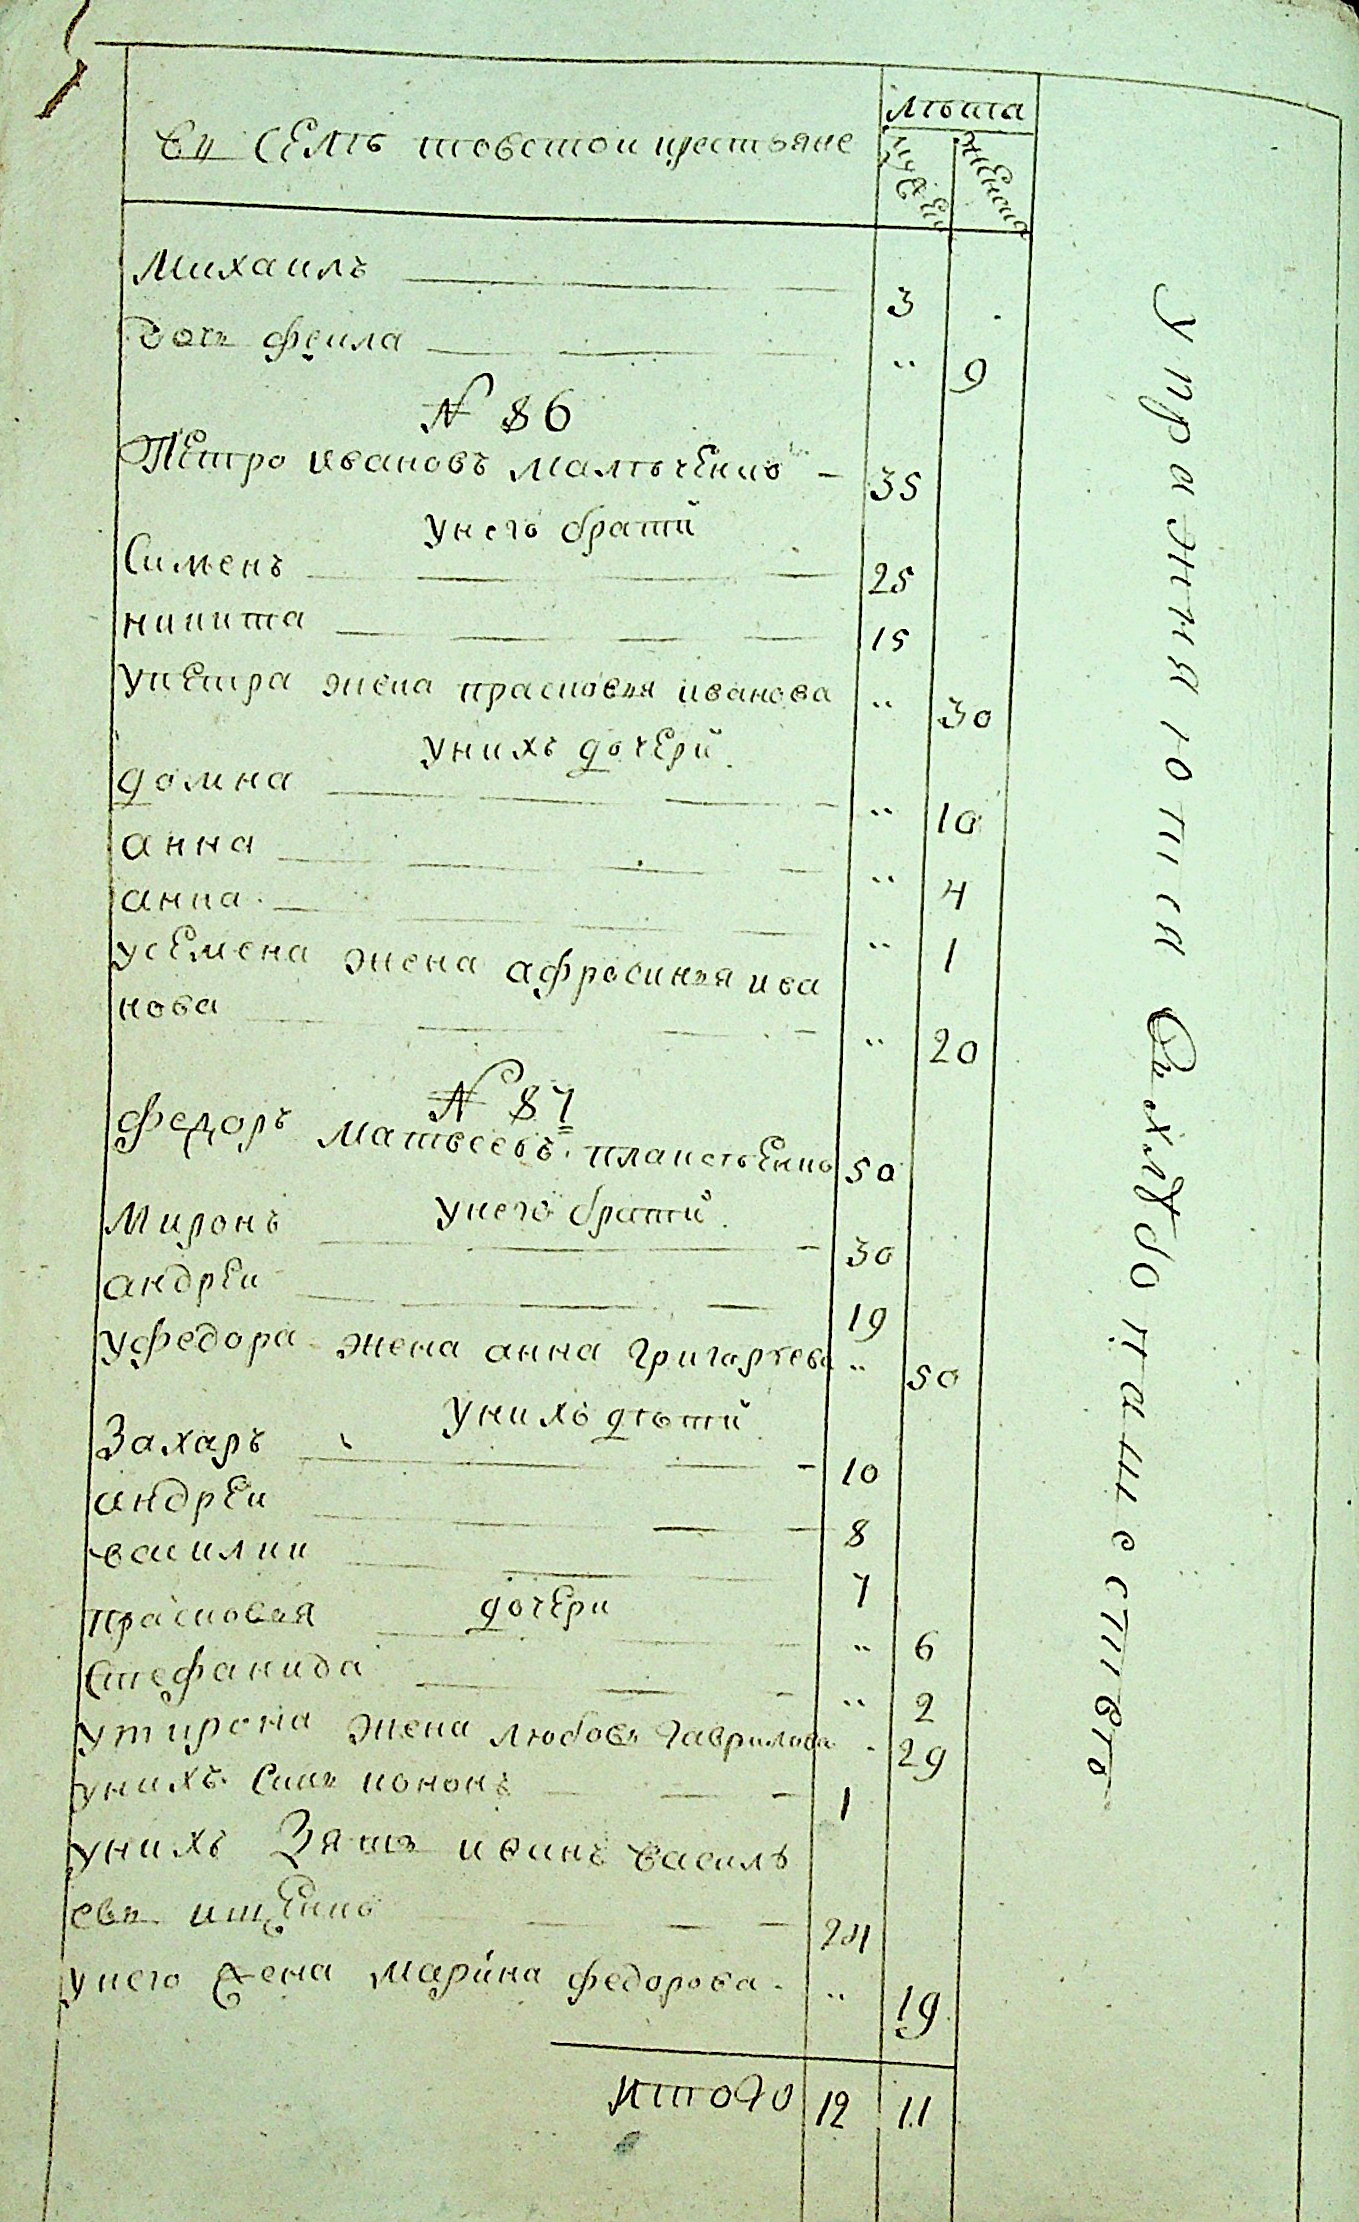 въ селѣ товстом крестьяне
лѣта
мужеи
женска
Михаилъ 3 .
дочь феила " 9
N 86
Петро Ивановъ малѣченко - 35
У него братти
Сименъ 25
никита 15
У петра жена прасковья иванова " 30
У нихъ дочери
домна " 10
анна " 4
анна " 1
У семена жена афросинья ива
нова " 20
N 87
федоръ матвеевъ 50
У него братти
Миронъ 30
андреи 19
У федора жена анна григорьева " 50
У нихъ дѣти
Захаръ 10
андреи 8
василии 7
дочери
прасковья " 6
Стефанида " 2
У мирона жена любовь гаврилова " 29
У нихъ синъ кононъ 1
У нихъ Зять иванъ василь
евъ ищенко 24
У него жена марина федорова " 19
итого 12 11
упражняются въ хлѣбопашествѣ